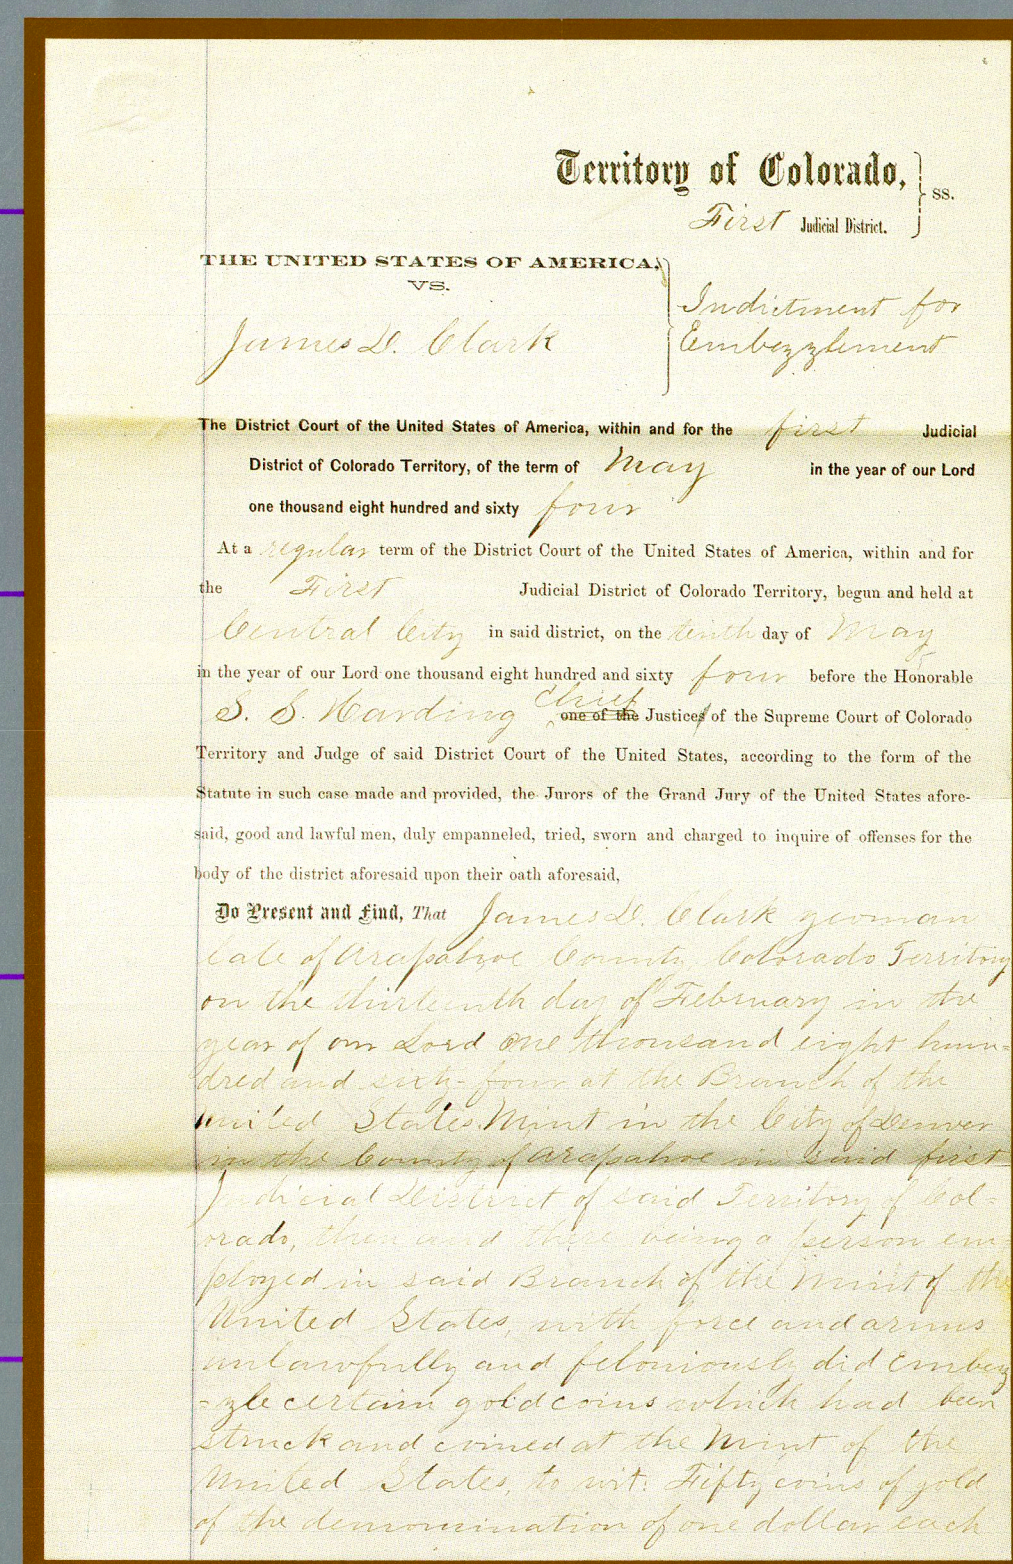 Territory of Colorado, } ss.
First Judicial District.
THE UNITED STATES OF AMERICA,
VS.
James D. Clark
Indictment for
Embezzlement
The District Court of the United States of America, within and for the first Judicial
District of Colorado Territory, of the term of May in the year of our Lord
one thousand eight hundred and sixty four
At a regular term of the District Court of the United States of America, within and for
the First Judicial District of Colorado Territory, begun and held at
Central City in said district, on the tenth day of May
in the year of our Lord one thousand eight hundred and sixty four before the Honorable
S. S. Harding Chief one of the Justices of the Supreme Court of Colorado
Territory and Judge of said District Court of the United States, according to the form of the
Statute in such case made and provided, the Jurors of the Grand Jury of the United States afore-
said, good and lawful men, duly empanneled, tried, sworn and charged to inquire of offenses for the
body of the district aforesaid upon their oath aforesaid,
Do Present and Find, That James D. Clark yeoman
late of Arapahoe County Colorado Territory
on the thirteenth day of February in the
year of our Lord One thousand eight hun=
dred and sixty-four at the Branch of the
United States Mint in the City of Denver
in the County of Arapahoe in said first
Judicial District of said Territory of Col=
orado, then and there being a person em=
ployed in said Branch of the Mint of the
United States, with force and arms
unlawfully and feloniously did embez
=zle certain gold coins which had been
struck and coined at the Mint of the
United States, to wit: Fifty coins of gold
of the denomination of one dollar each